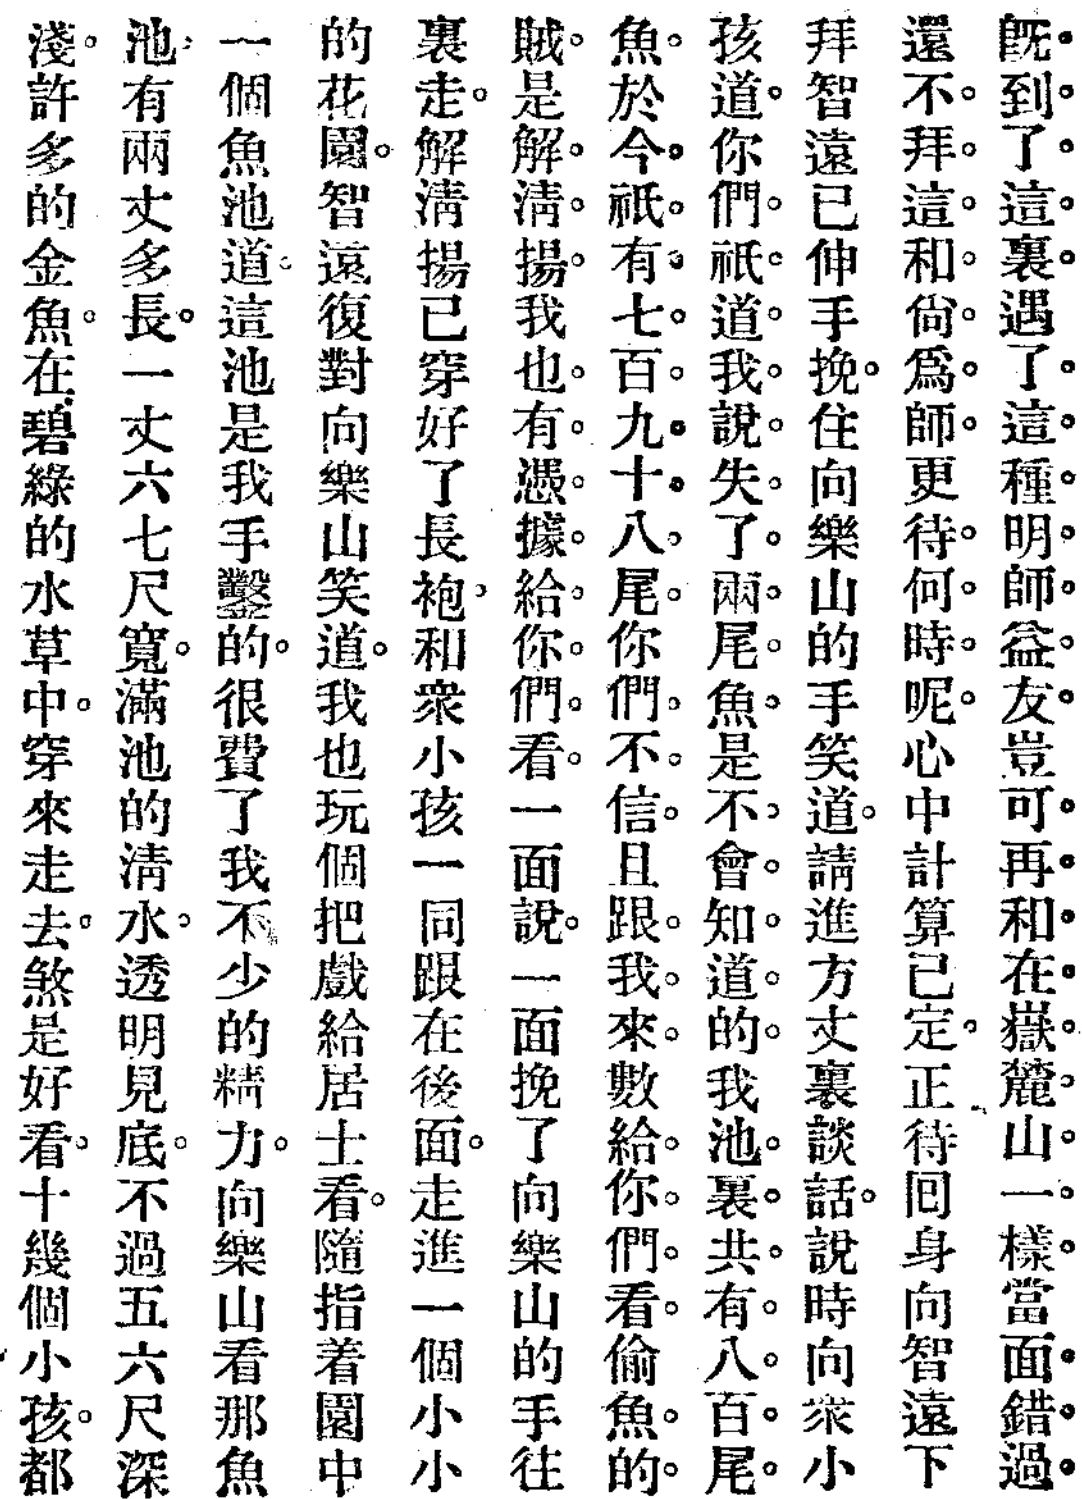 既到了這裏遇了這種明師益友豈可再和在嶽麓山一樣當面錯過
還不拜這和尙爲師更待何時呢心中計算已定正待回身向智遠下
拜智遠已伸手挽住向樂山的手笑道請進方丈裏談話說時向衆小
孩道你們祇道我說失了兩尾魚是不會知道的我池裏共有八百尾
魚於今祇有七百九十八尾你們不信且跟我來數給你們看偷魚的
賊是解淸揚我也有憑據給你們看一面說一面挽了向樂山的手往
裏走解淸揚已穿好了長袍和衆小孩一同跟在後面走進一個小小
的花園智遠復對向樂山笑道我也玩個把戲給居士看隨指着園中
一個魚池道這池是我手鑿的很費了我不少的精力向樂山看那魚
池有兩丈多長一丈六七尺寬滿池的淸水透明見底不過五六尺深
淺許多的金魚在碧綠的水草中穿來走去煞是好看十幾個小孩都